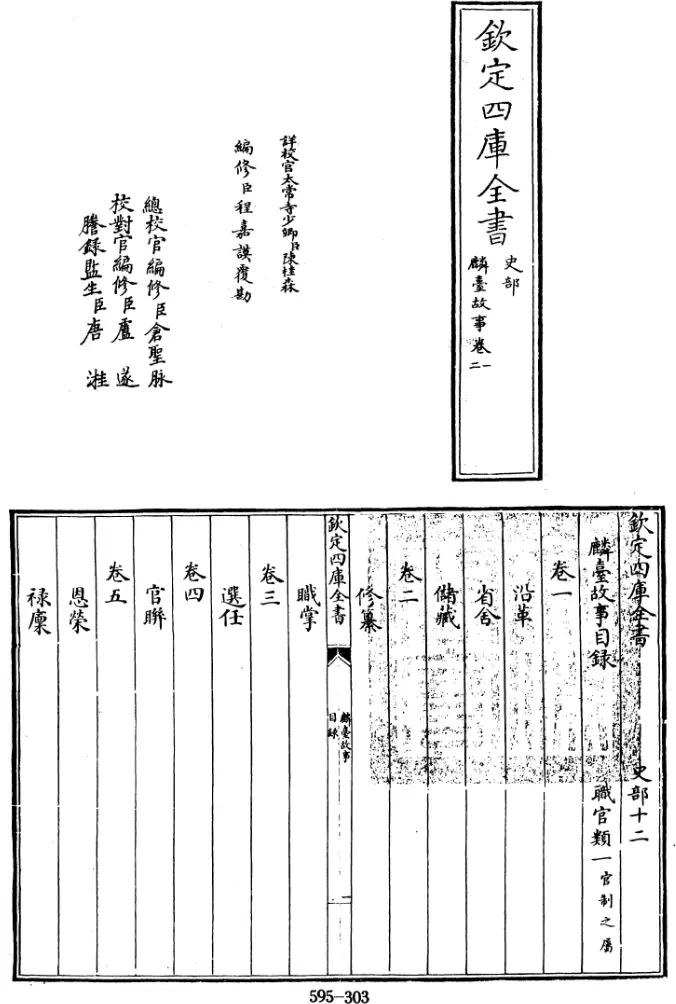 欽定四庫全書
史部
麟臺故事卷一
二
詳校官太常寺少卿臣陳桂森
編修臣程嘉謨覆勘
總校官編修臣倉聖脉
校對官編修臣盧遂
謄錄監生臣唐㳠
欽定四庫全書 史部十二
麟臺故事目錄 職官類一官制之屬
卷一
沿革
省舍
儲藏
卷二
修纂
欽定四庫全書
麟臺故事
目錄
一
職掌
卷三
選任
卷四
官聯
卷五
恩榮
禄廩
595-303